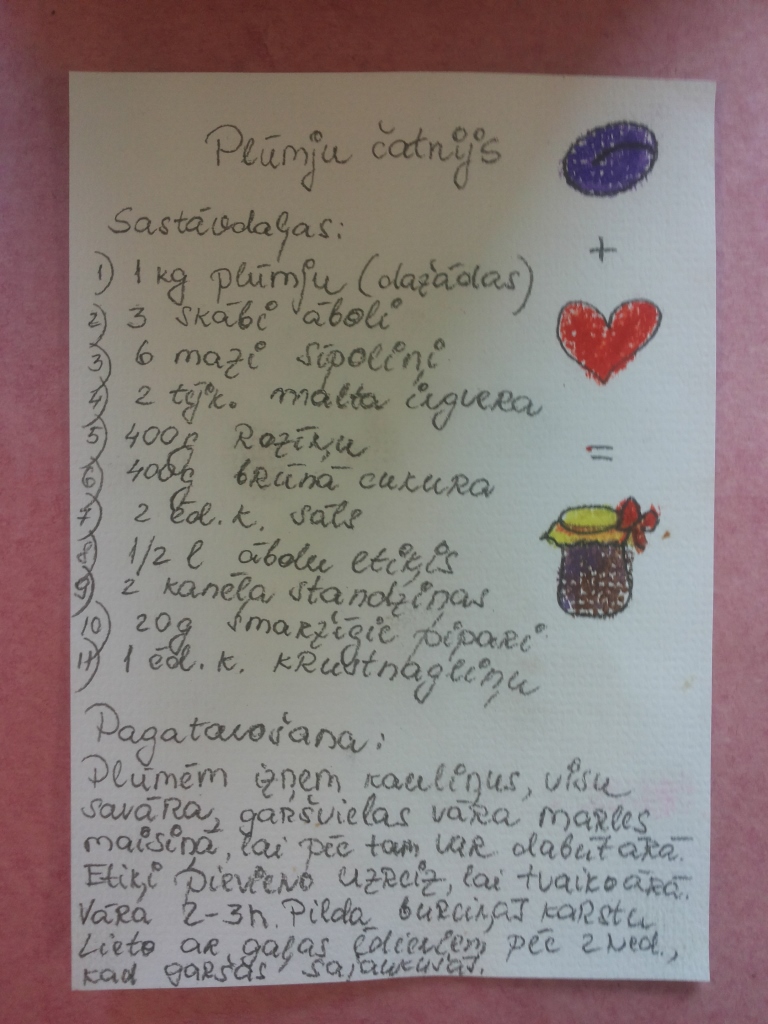 Plūmju čatnijs
+
Sastāvdaļas:
1) 1 kg plūmju (dažādas)
2) 3 skābi āboli
3) 6 mazi sīpoliņi
4) 2 tējk. malta ingvera
5) 400g Rozīņu
=
6) 400g brūnā cukura
7) 2 ēd.k. sāls
8) 1/2 l ābolu etiķis
9) 2 kanēļa standziņas
10) 20g smaržīgie pipari
11) 1 ēd.k. krustnagliņu
Pagatavošana:
Plūmēm izņem kauliņus, visu
savāra, garšvielas vāra marles
maisiņā, lai pēc tam var dabūt ārā.
Etiķi pievieno uzreiz, lai tvaiko ārā.
Vāra 2-3h. Pilda burciņās karstu.
Lieto ar gaļas ēdieniem pēc 2 ned.,
kad garšas sajaukušās.